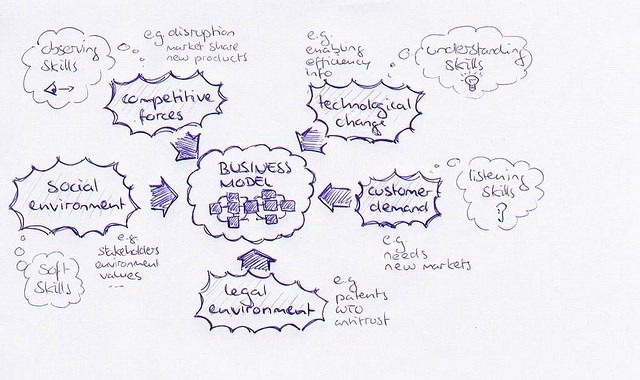 observing
skills
e.g. disruption
market share
new products
competitive
forces
e.g.
enabling
efficiency
info
understanding
skills
technological
change
BUSINESS
MODEL
social
environment
e.g.
stakeholders
environment
values
...
soft-
skills
customer
demand
e.g.
needs
new markets
listening
skills
?
legal
environment
e.g.
patents
WTO
antitrust